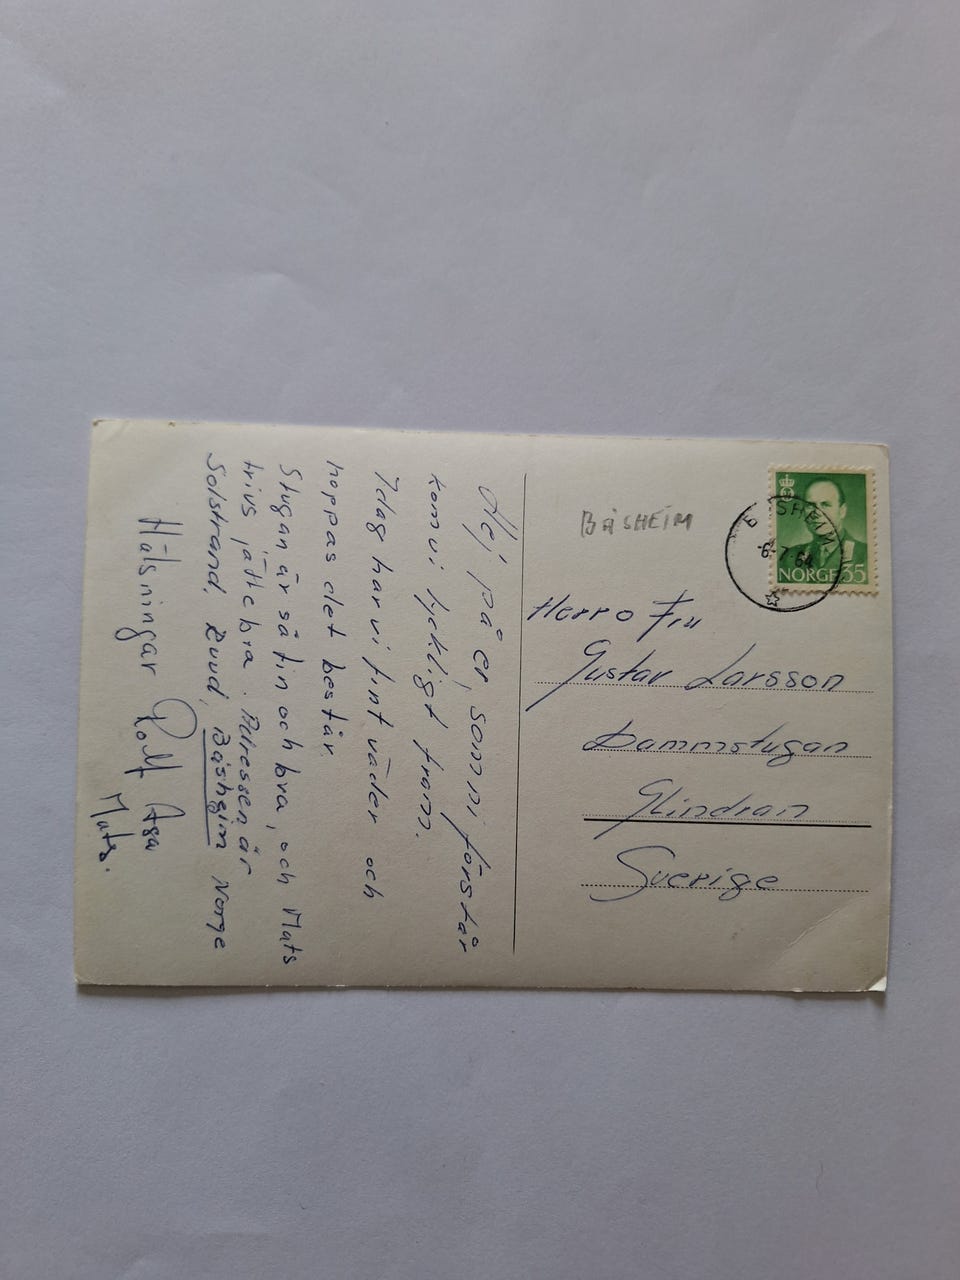 Hej på er, som ni förstår
kom vi lyckligt fram.
Idag har vi fint väder och
hoppas det består
Stugan är så fin och bra, och Mats
trivs jättebra. Adressen är
Solstrand, Ruud, Båsheim Norge
Hälsningar Rolf Åsa
Mats.
BÅSHEIM
BÅSHEIM
-6.7.64
NORGE 35
Herr o Fru
Gustav Larsson
Dammstugan
Glindran
Sverige